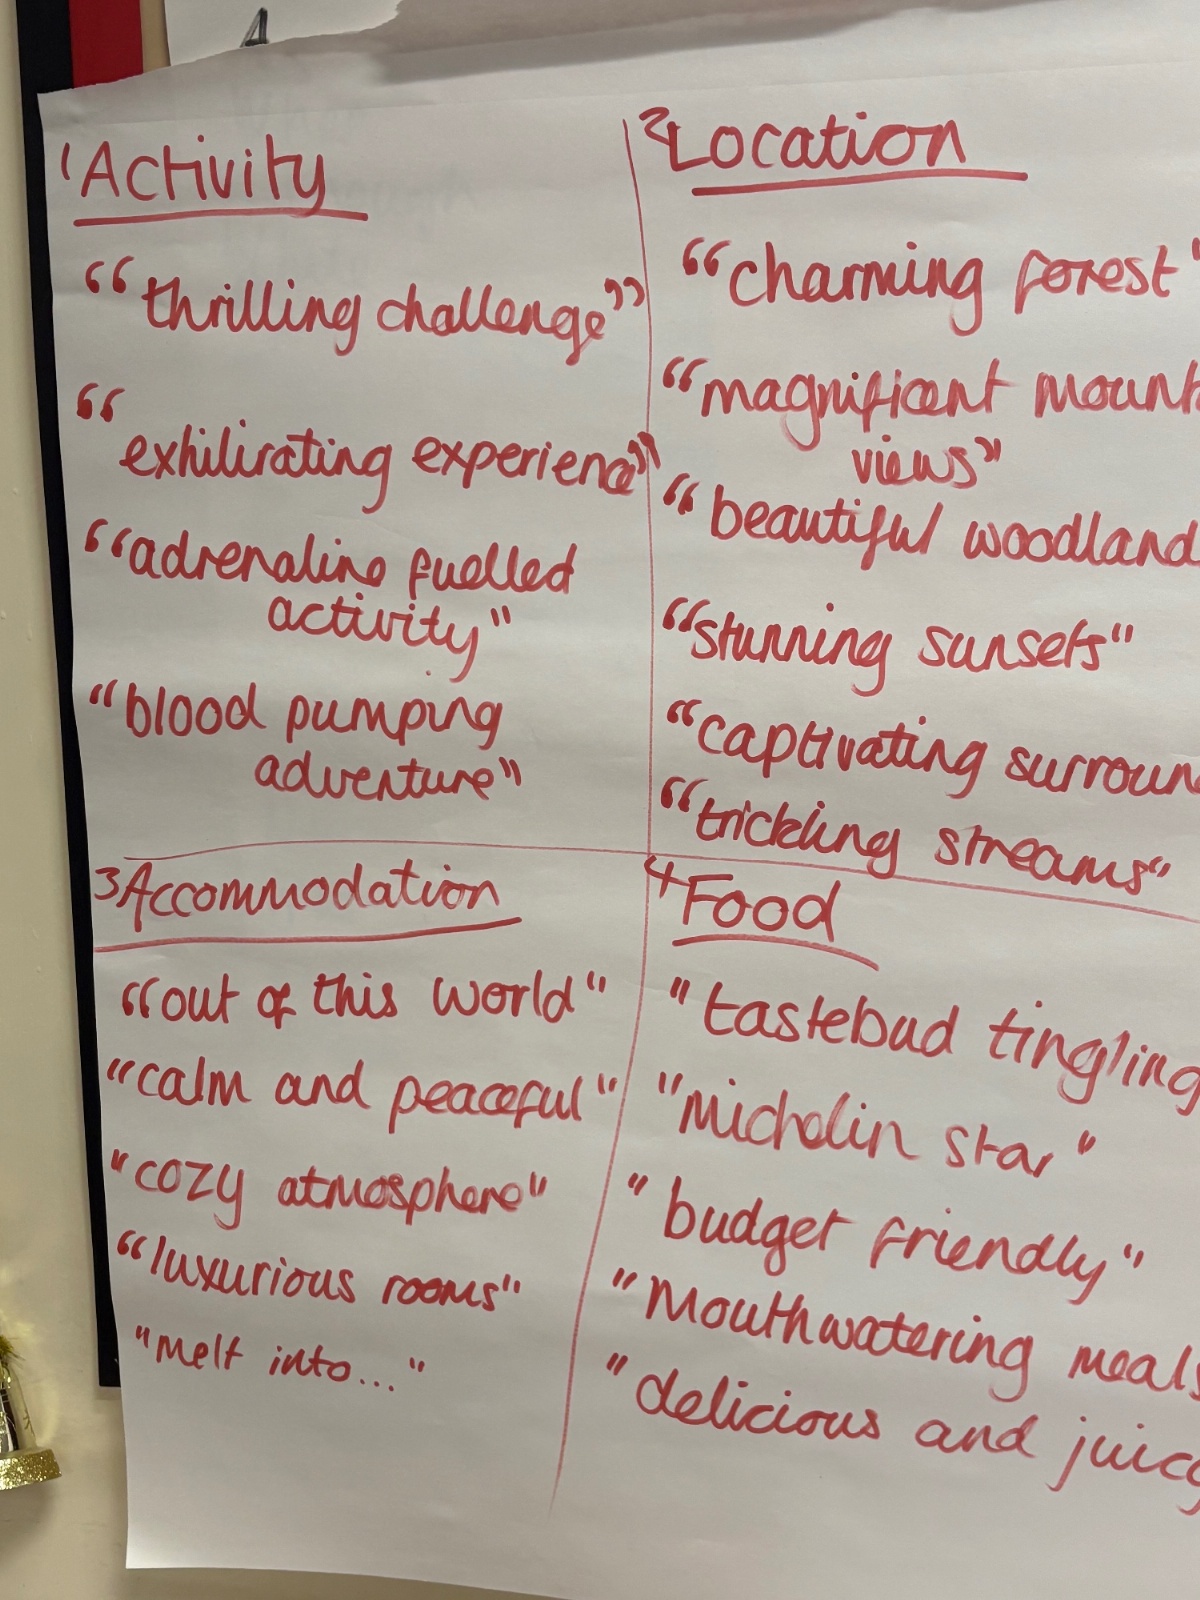 A
1 Activity
"thrilling challenge"
"exhilirating experience"
"adrenaline fuelled
activity"
"blood pumping
adventure"
2 Location
"charming forest"
"magnificent mount
views"
"beautiful woodland
"stunning sunsets"
"captivating surroun
"trickling streams"
3 Accommodation
"out of this world"
"calm and peaceful"
"cozy atmosphere"
"luxurious rooms"
"melt into..."
4 Food
"tastebud tingling
"Michelin star"
"budget friendly"
"Mouthwatering meals
"delicious and juicy